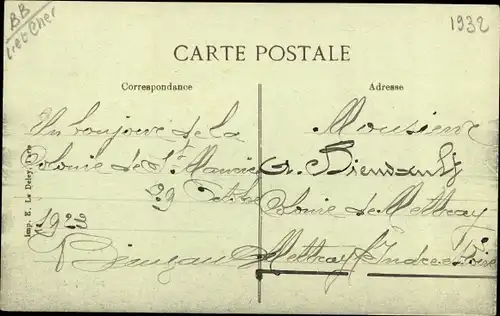 BB
Loir et Cher
1932
CARTE POSTALE
Correspondance
Adresse
Un bonjour de la
Colonie de St Maurice
29 Octobre
1923
Monsieur
G.
Colonie de Mettray
Mettray Indre et Loire
Imp. E. Le Deley, Paris